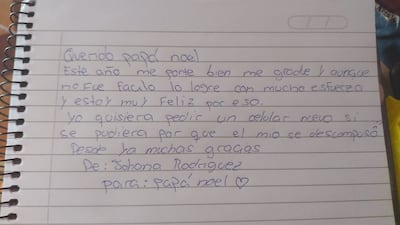 Querido papá noel
Este año me porte bien me grade y aunque
no fue facilo lo logre con mucho esfuerzo
y estoy muy Feliz por eso.
Yo quisiera pedir un celular nuevo si
se pudiera por que el mio se descompuso
Desde ya muchas gracias
De: Johana Rodriguez
para: papá noel